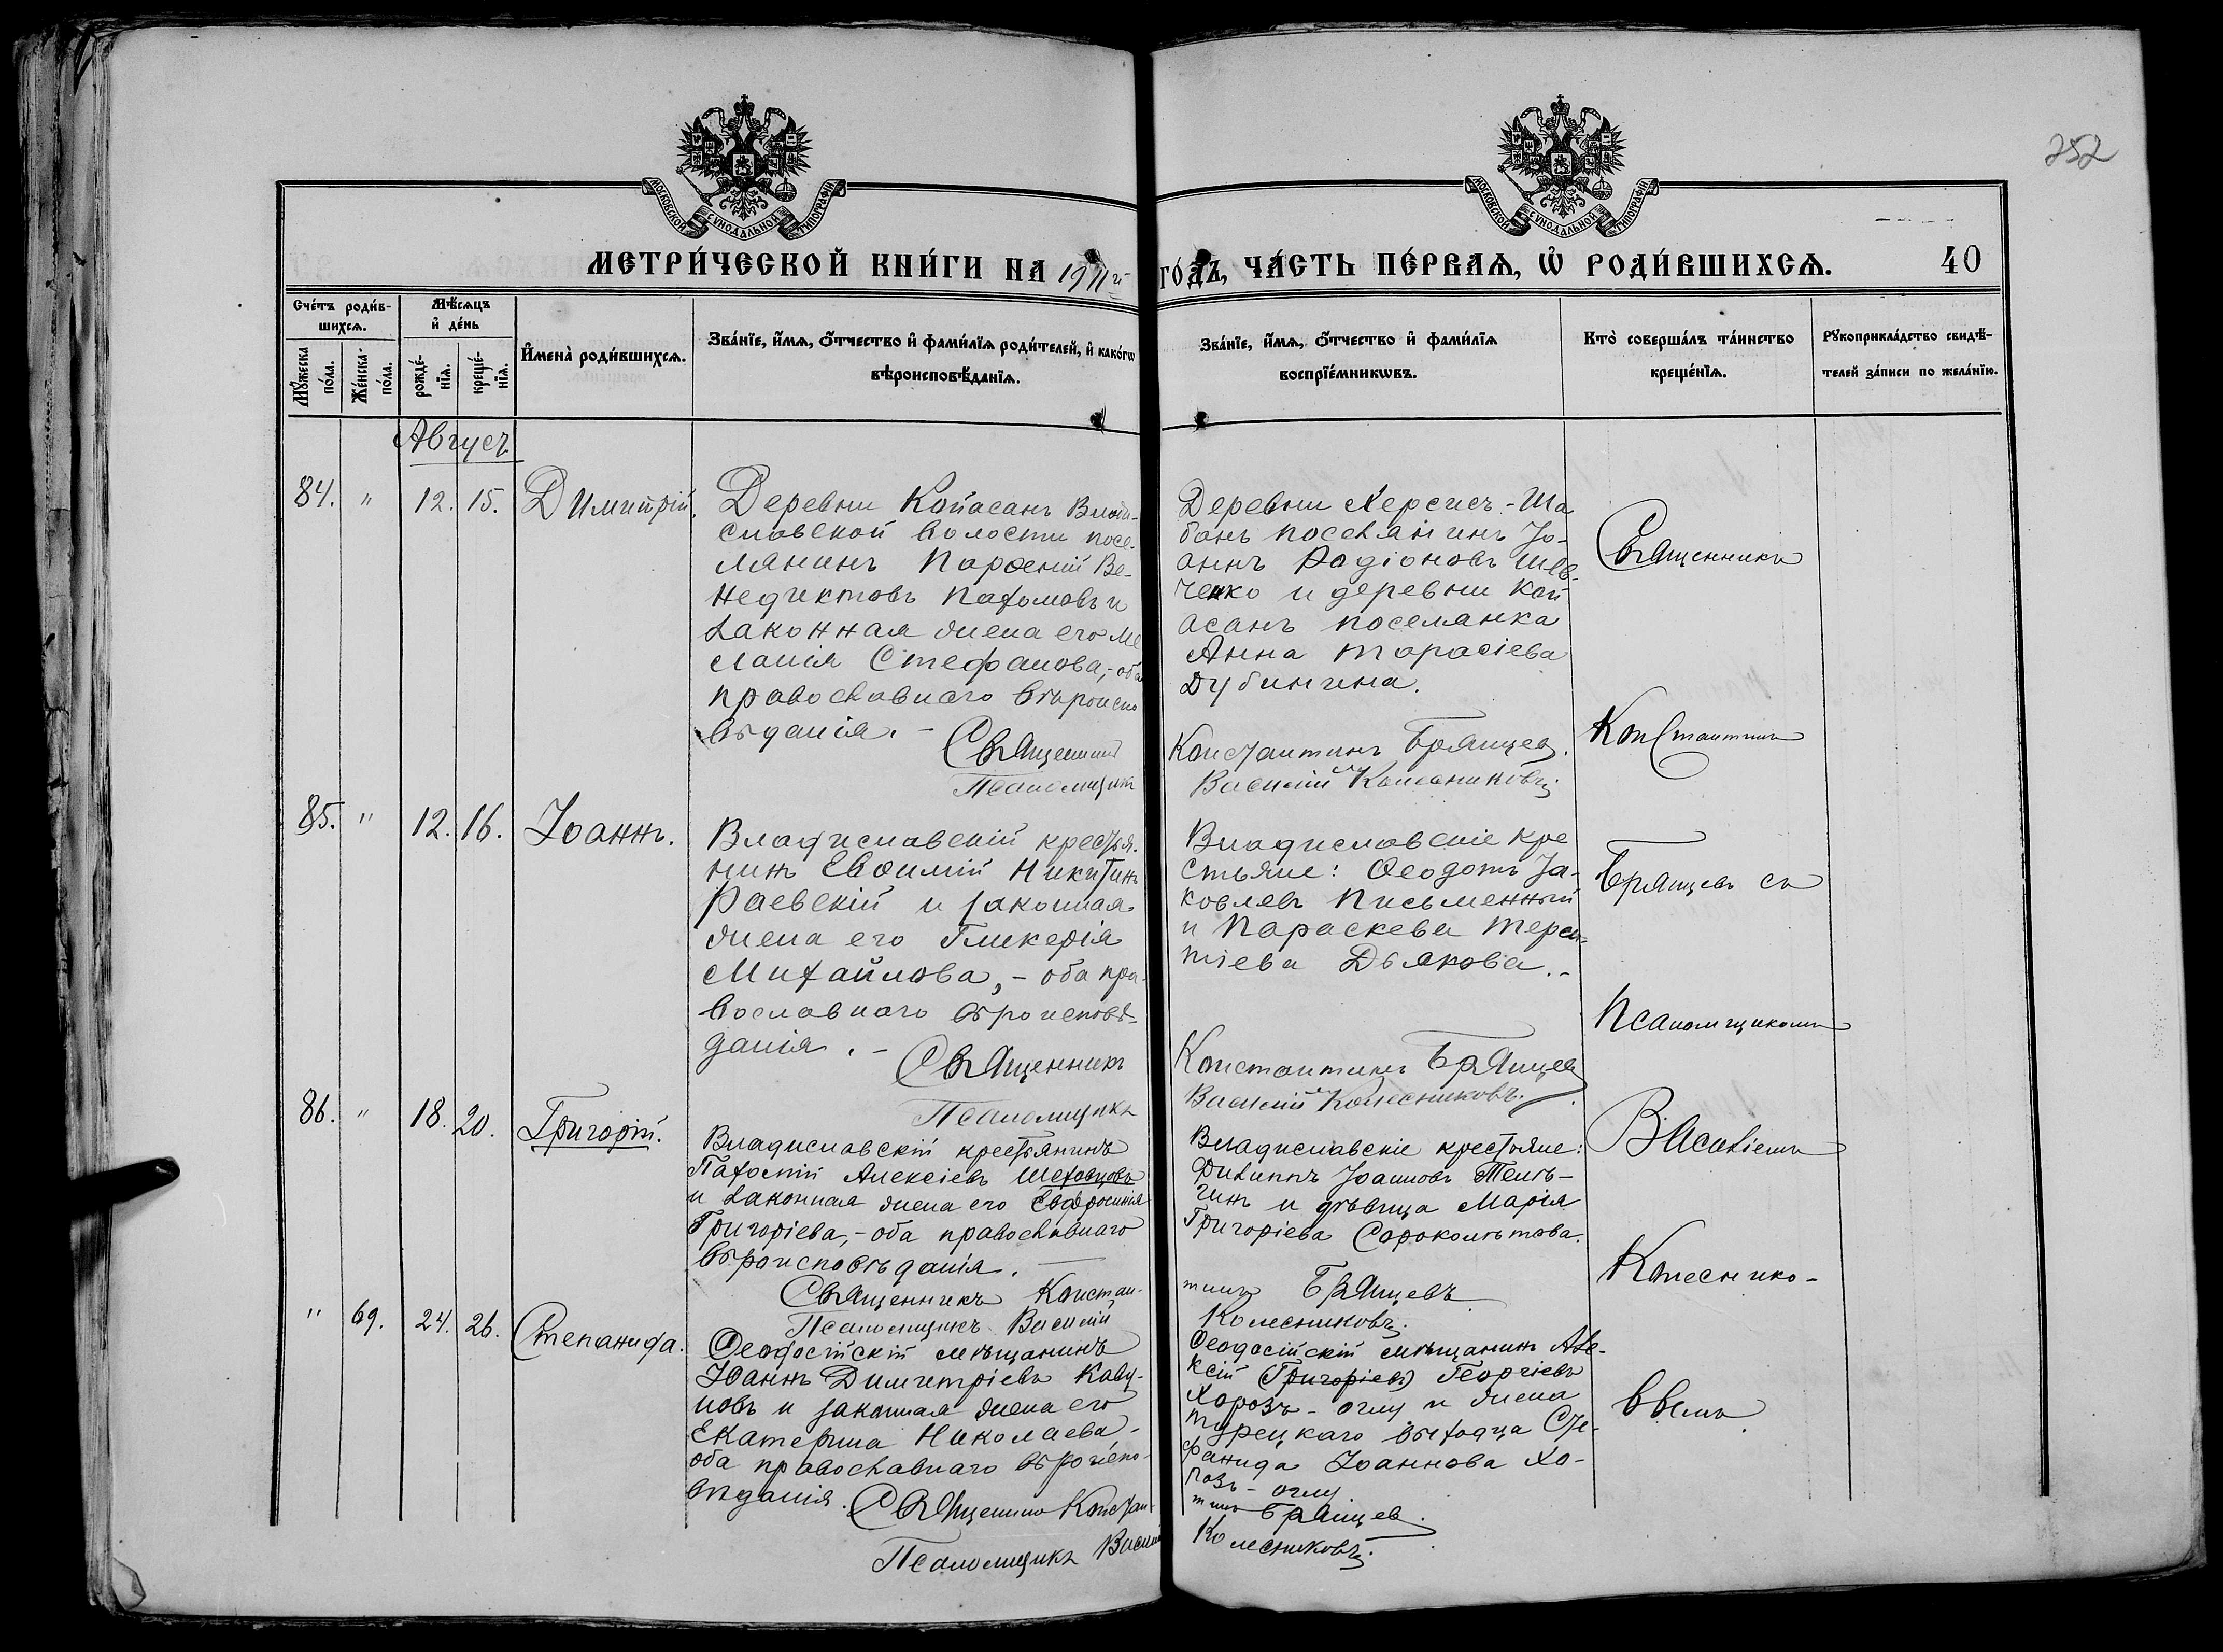 252
МОСКОВСКОЙ СѴНОДАЛЬНОЙ ТИПОГРАФІИ
МОСКОВСКОЙ СѴНОДАЛЬНОЙ ТИПОГРАФІИ
МЕТРИ́ЧЕСКОЙ КНИ́ГИ НА 1911 й
ГО́ДЪ, ЧА́СТЬ ПЕ́РВАѦ, Ѡ РОДИ́ВШИХСѦ. 40
Сче́тъ роди́в-
шихсѧ.
Мѣ́сѧцъ
и҆ де́нь
Мꙋ́жеска по́ла.
Же́нска- по́ла.
рожде́- нїѧ.
креще́- нїѧ.
И҆мена̀ роди́вшихсѧ.
Зва́нїе, и҆́мѧ, ѻ҆́тчество и҆ фами́лїѧ роди́телей, и҆ како́гѡ
вѣроисповѣ́данїѧ.
Зва́нїе, и҆́мѧ, ѻ҆́тчество и҆ фами́лїѧ
воспрїе́мникѡвъ.
Кто̀ соверша́лъ та́инство
креще́нїѧ.
Рꙋкоприкла́дство свидѣ́-
телей за́писи по жела́нїю.
Август
84. " 12. 15. Димитрій.
Деревни Койасанъ Влади-
славской волости посе-
лянинъ Парѳеній Ве-
недиктовъ Пахомовъ и
законная жена его Ме
ланія Стефанова, - оба
православнаго вѣроиспо
вѣданія. -
Священникъ
Псаломщикъ
Деревни Херсисъ-Ша
банъ поселянинъ Іо-
аннъ Родіоновъ Шев-
ченко и деревни Кой
асанъ поселянка
Анна Тарасіева
Дубинина.
Константинъ Брянцевъ.
Василій Колесниковъ.
85. " 12. 16. Іоаннъ.
Владиславскій крестья-
нинъ Евѳимій Никитинъ
Раевскій и законная
жена его Гликерія
Михайлова, - оба пра-
вославнаго вѣроисповѣ-
данія. -
Священникъ
Псаломщикъ
Владиславскіе кре
стьяне: Ѳеодотъ Іа-
ковлевъ Письменный
и Параскева Терен-
тіева Дьякова. -
Константинъ Брянцевъ
Василій Колесниковъ.
86. " 18. 20. Григорій.
Владиславскій крестьянинъ
Пахомій Алексіевъ Шеховцовъ
и законная жена его Евфросинія
Григоріева, - оба православнаго
вѣроисповѣданія.
Священникъ Констан-
Псаломщикъ Василій
Владиславскіе крестьяне:
Филиппъ Іоанновъ Тель-
гинъ и дѣвица Марія
Григоріева Сороколѣтова.
тинъ Брянцевъ
Колесниковъ.
" 69. 24. 26. Степанида.
Ѳеодосійскій мѣщанинъ
Іоаннъ Димитріевъ Каву-
новъ и законная жена его
Екатерина Николаева, -
оба православнаго вѣроиспо-
вѣданія.
Священникъ Констан-
Псаломщикъ Василій
Ѳеодосійскій мѣщанинъ Але-
ксій (Григоріевъ) Георгіевъ
Хорозъ-оглу и жена
турецкаго выходца Сте-
фанида Іоаннова Хо-
розъ-оглу
тинъ Брянцевъ.
Колесниковъ.
Священникъ
Константинъ
Брянцевъ съ
Псаломщикомъ
Василіемъ
Колеснико-
вымъ